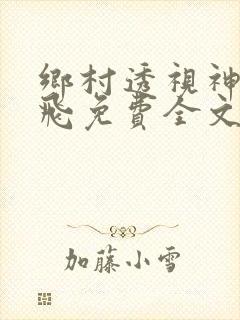 鄉村透視神
飛免費全文
加藤小雪